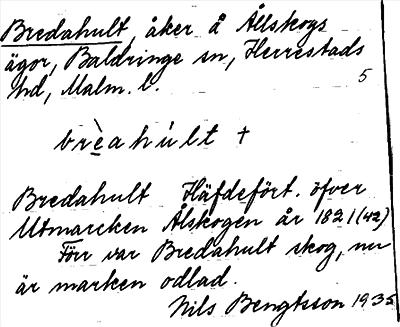 Bredahult, åker å Ållskogs
ägor, Baldringe sn, Herrestads
hd, Malm. l.
5
brèa hu̍lt +
Bredahult Häfdefört. öfver
Utmarcken Ålskogen år 1821 (42)
Förr var Bredahult skog, nu
är marken odlad.
Nils Bengtsson 1935